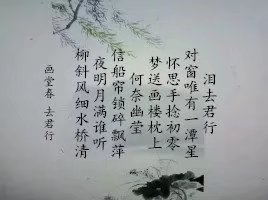 泪去君行
对窗唯有一潭星
怀思手捻初零
梦送画楼枕上
何奈幽莹
信船帘锁碎飘萍
夜明月满谁听
柳斜风细水桥清
画堂春 去君行